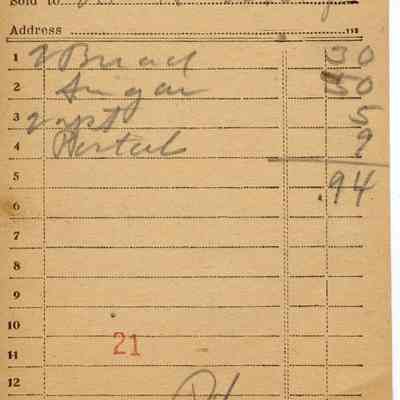 Sold to
Address
1 2 Bread 30
2 Sugar 50
3 5
4 9
5 .94
6
7
8
9
10
11 21
12